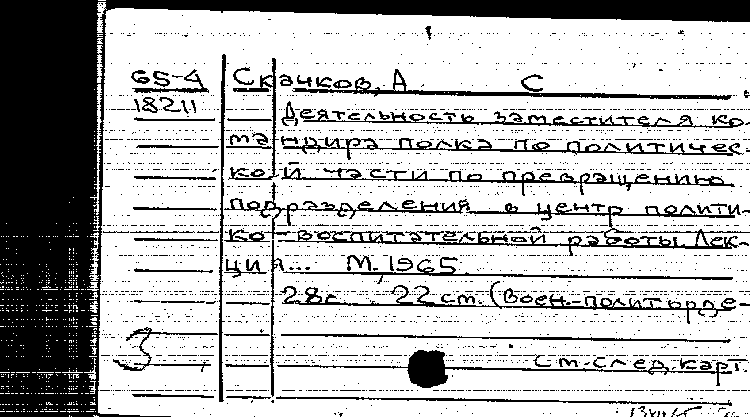 65-4 Скачков, А С
18211 Деятельность заместителя ко-
мандира полка по политичес-
кой части по превращению
подразделений в центр полити-
ко-воспитательной работы. Лек-
ция... М., 1965.
28с. 22 см. (Воен.-полит. орде-
3
См. след. карт.